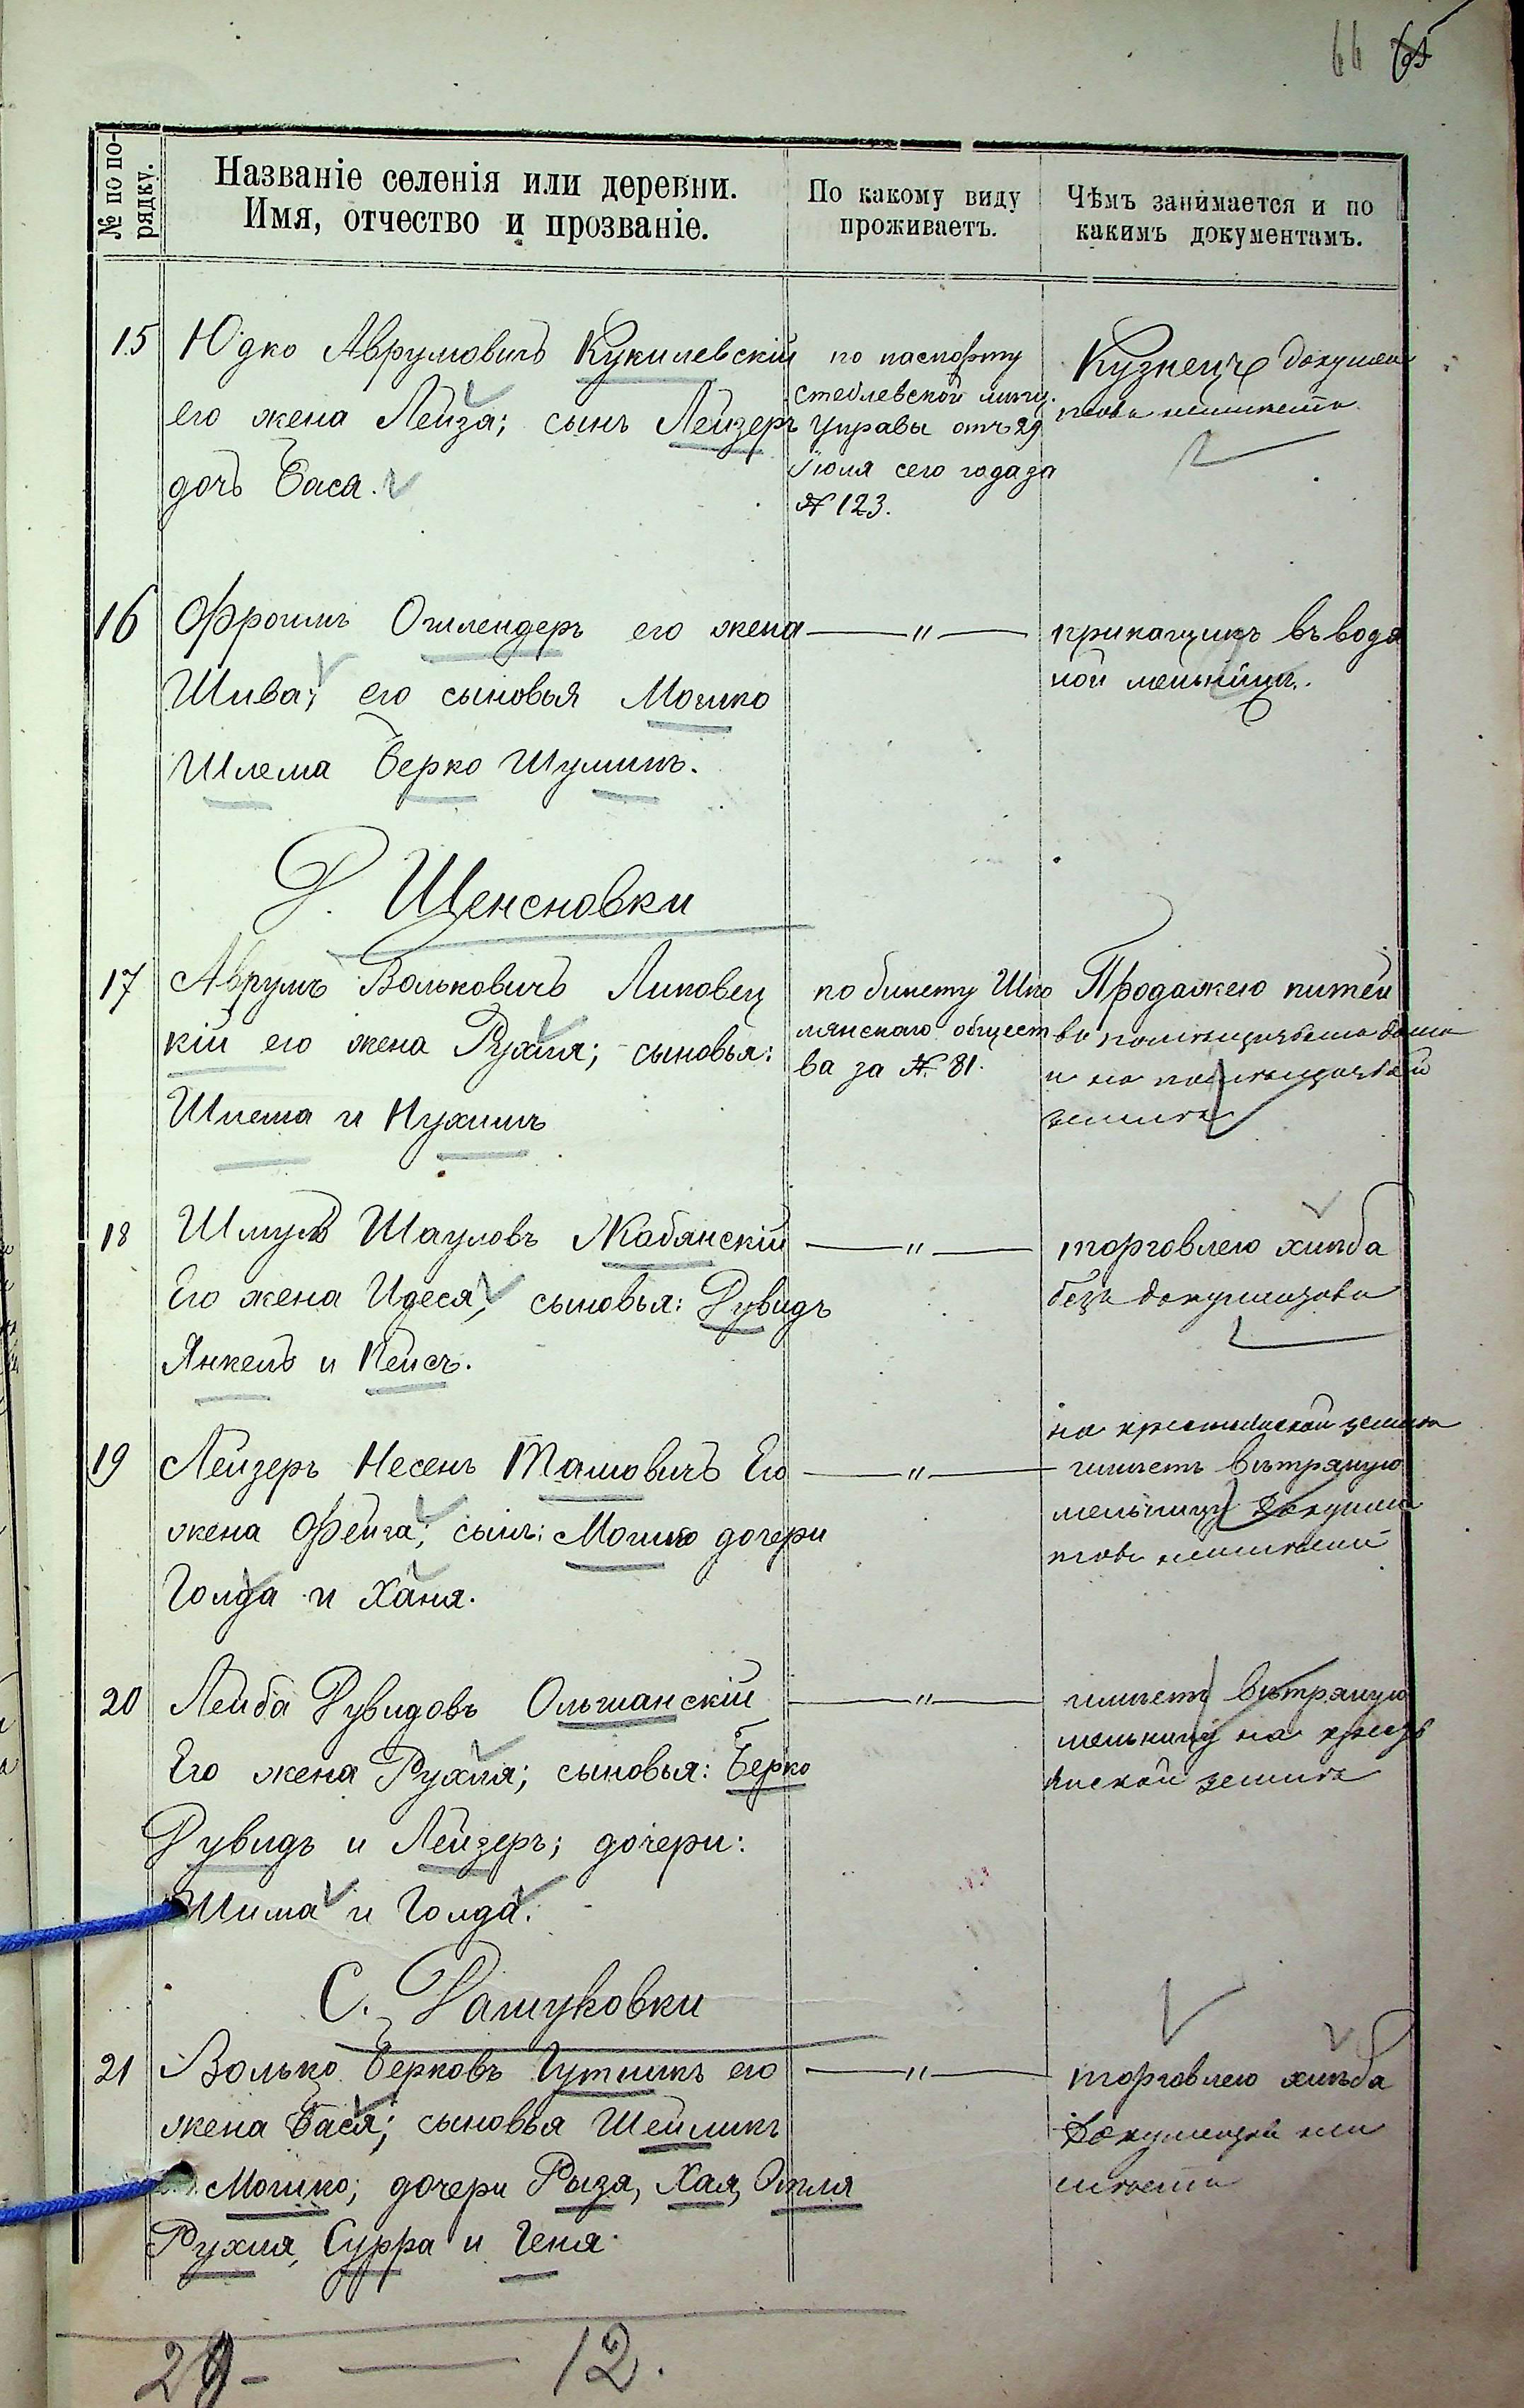 66 65
№ по по-
рядку.
Названіе селенія или деревни.
Имя, отчество и прозваніе.
По какому виду
проживаетъ.
Чѣмъ занимается и по
какимъ документамъ.
15 Юдко Аврумовичъ Кукилевскій
его жена Лейза; сынъ Лейзеръ
дочь Бася.
по паспорту
стеблевской мѣщ.
Управы отъ 29
Іюля сего года за
№ 123.
Кузнецъ докумен
товъ неимѣетъ
16 Фроимъ Ошлендеръ его жена
Шива; его сыновья Мошко
Шлема Берко Шулимъ.
—"—
прикащикъ въ водя
ной мельницѣ.
Д. Щенсновки
17 Аврумъ Вольковичъ Липовец
кій его жена Рухля; сыновья:
Шлема и Нухимъ
по билету Шпо
лянскаго общест
ва за № 81.
Продажею питей
въ помѣщичьемъ домѣ
и на помѣщичьей
землѣ
18 Шмуль Шауловъ Жабянскій
Его жена Идеся, сыновья: Рувидъ
Янкель и Кейсъ.
—"—
торговлею хлѣба
безъ документовъ
19 Лейзеръ Несенъ Талмовичъ Его
жена Фейга; сынъ: Мошко дочери
Голда и Ханя.
—"—
на крестьянской землѣ
имѣетъ вѣтряную
мельницу докумен
товъ неимѣетъ
20 Лейба Рувидовъ Ольшанскій
Его жена Рухля; сыновья: Берко
Рувидъ и Лейзеръ; дочери:
Шима и Голда.
—"—
имѣетъ вѣтряную
мельницу на крест
янской землѣ
С. Рашуковки
21 Волько Берковъ Гутникъ его
жена Бася; сыновья Шейликъ
Мошко; дочери Рыза, Хая, Этля
Рухля, Сурра и Геня.
—"—
торговлею хлѣба
документовъ неи
имѣетъ
29 — 12.